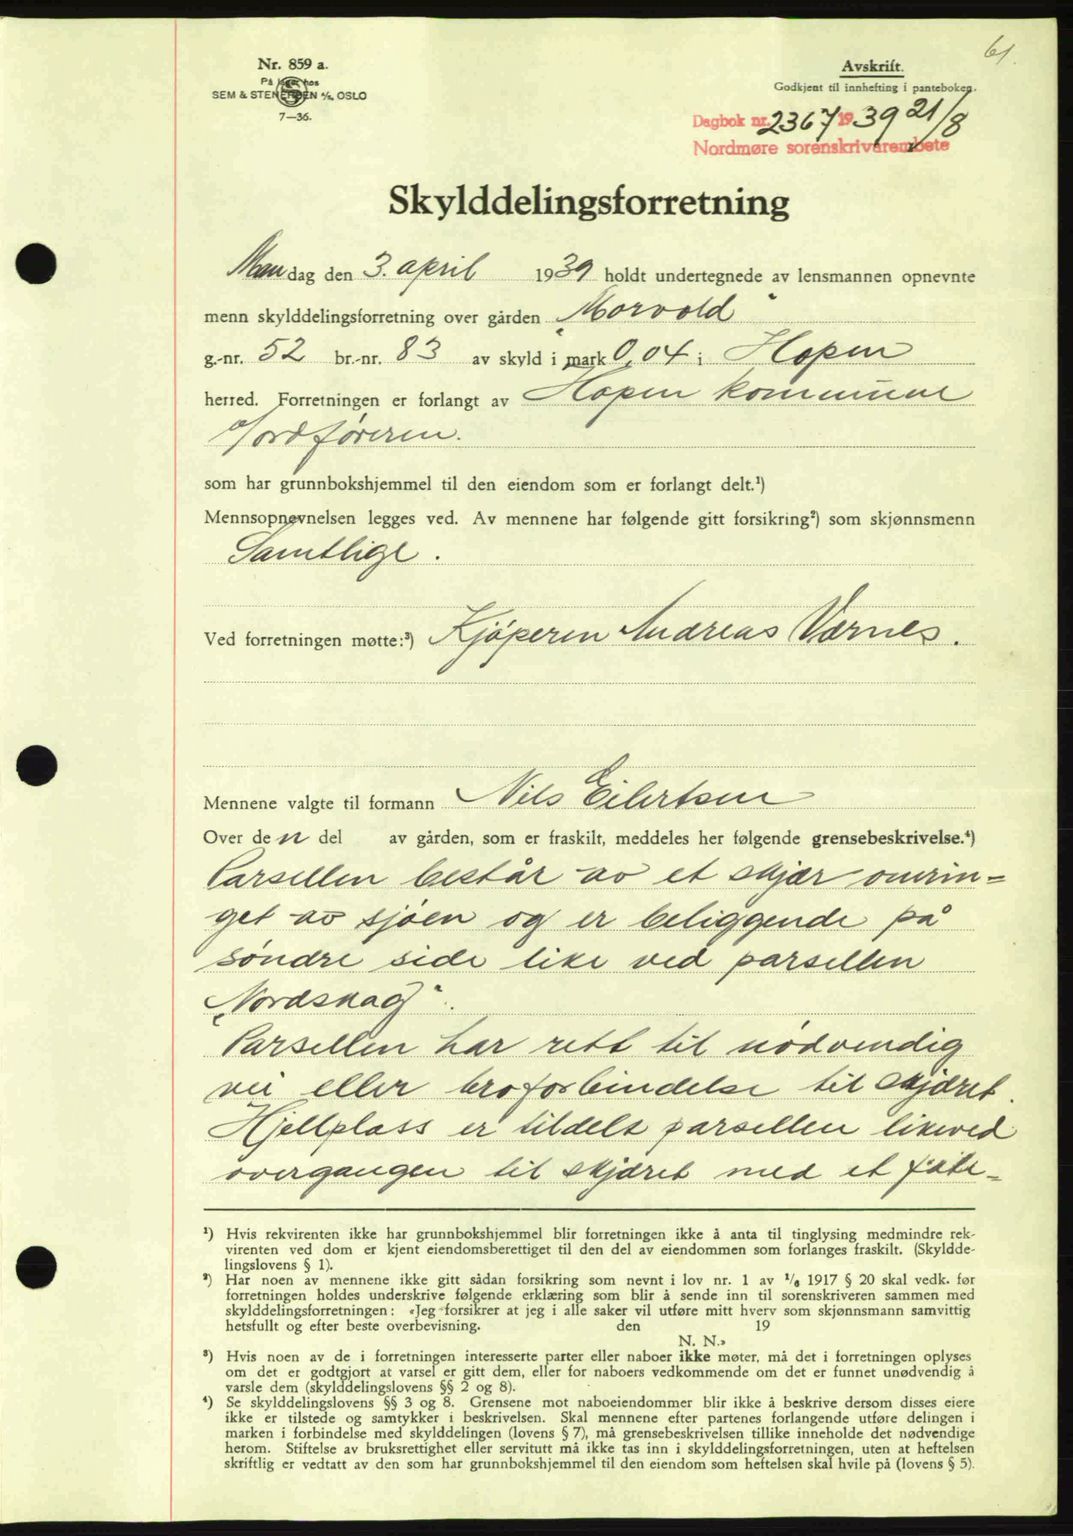 61.
Nr. 859 a.
På lager hos
SEM & STENERSEN A/S, OSLO
7—36.
Avskrift.
Godkjent til innhefting i panteboken.
Dagbok nr. 2367 1939 21/8
Nordmøre sorenskriverembete
Skylddelingsforretning
Mandag den 3. april 1939 holdt undertegnede av lensmannen opnevnte
menn skylddelingsforretning over gården „Morvold"
g.-nr. 52 br.-nr. 83 av skyld i mark 0,04 i Hopen
herred. Forretningen er forlangt av Hopen kommune
v/ordføreren.
som har grunnbokshjemmel til den eiendom som er forlangt delt.¹)
Mennsopnevnelsen legges ved. Av mennene har følgende gitt forsikring²) som skjønnsmenn
Samtlige.
Ved forretningen møtte:³) Kjöperen Andreas Værnes.
Mennene valgte til formann Nils Eilertsen
Over den del av gården, som er fraskilt, meddeles her følgende grensebeskrivelse.⁴)
Parsellen består av et skjær omrin=
get av sjöen og er beliggende på
söndre side like ved parsellen
„Nordskag".
Parsellen har rett til nödvendig
vei eller broforbindelse til skjæret.
Hjellplass er tildelt parsellen likeved
overgangen til skjæret med et
¹) Hvis rekvirenten ikke har grunnbokshjemmel blir forretningen ikke å anta til tinglysing medmindre rek-
virenten ved dom er kjent eiendomsberettiget til den del av eiendommen som forlanges fraskilt. (Skyldde-
lingslovens § 1).
²) Har noen av mennene ikke gitt sådan forsikring som nevnt i lov nr. 1 av 1/6 1917 § 20 skal vedk. før
forretningen holdes underskrive følgende erklæring som blir å sende inn til sorenskriveren sammen med
skylddelingsforretningen: «Jeg forsikrer at jeg i alle saker vil utføre mitt hverv som skjønnsmann samvittig
hetsfullt og efter beste overbevisning. den 19
N. N.»
³) Hvis noen av de i forretningen interesserte parter eller naboer ikke møter, må det i forretningen oplyses
om det er godtgjort at varsel er gitt dem, eller for naboers vedkommende om det er funnet unødvendig å
varsle dem (skylddelingslovens §§ 2 og 8).
⁴) Se skylddelingslovens §§ 3 og 8. Grensene mot naboeiendommer blir ikke å beskrive dersom disses eiere
ikke er tilstede og samtykker i beskrivelsen. Skal mennene efter partenes forlangende utføre delingen i
marken i forbindelse med skylddelingen (lovens § 7), må grensebeskrivelsen tillike inneholde det nødvendige
herom. Stiftelse av bruksrettighet eller servitutt må ikke tas inn i skylddelingsforretningen, uten at heftelsen
skriftlig er vedtatt av den som har grunnbokshjemmel til den eiendom som heftelsen skal hvile på (lovens § 5).